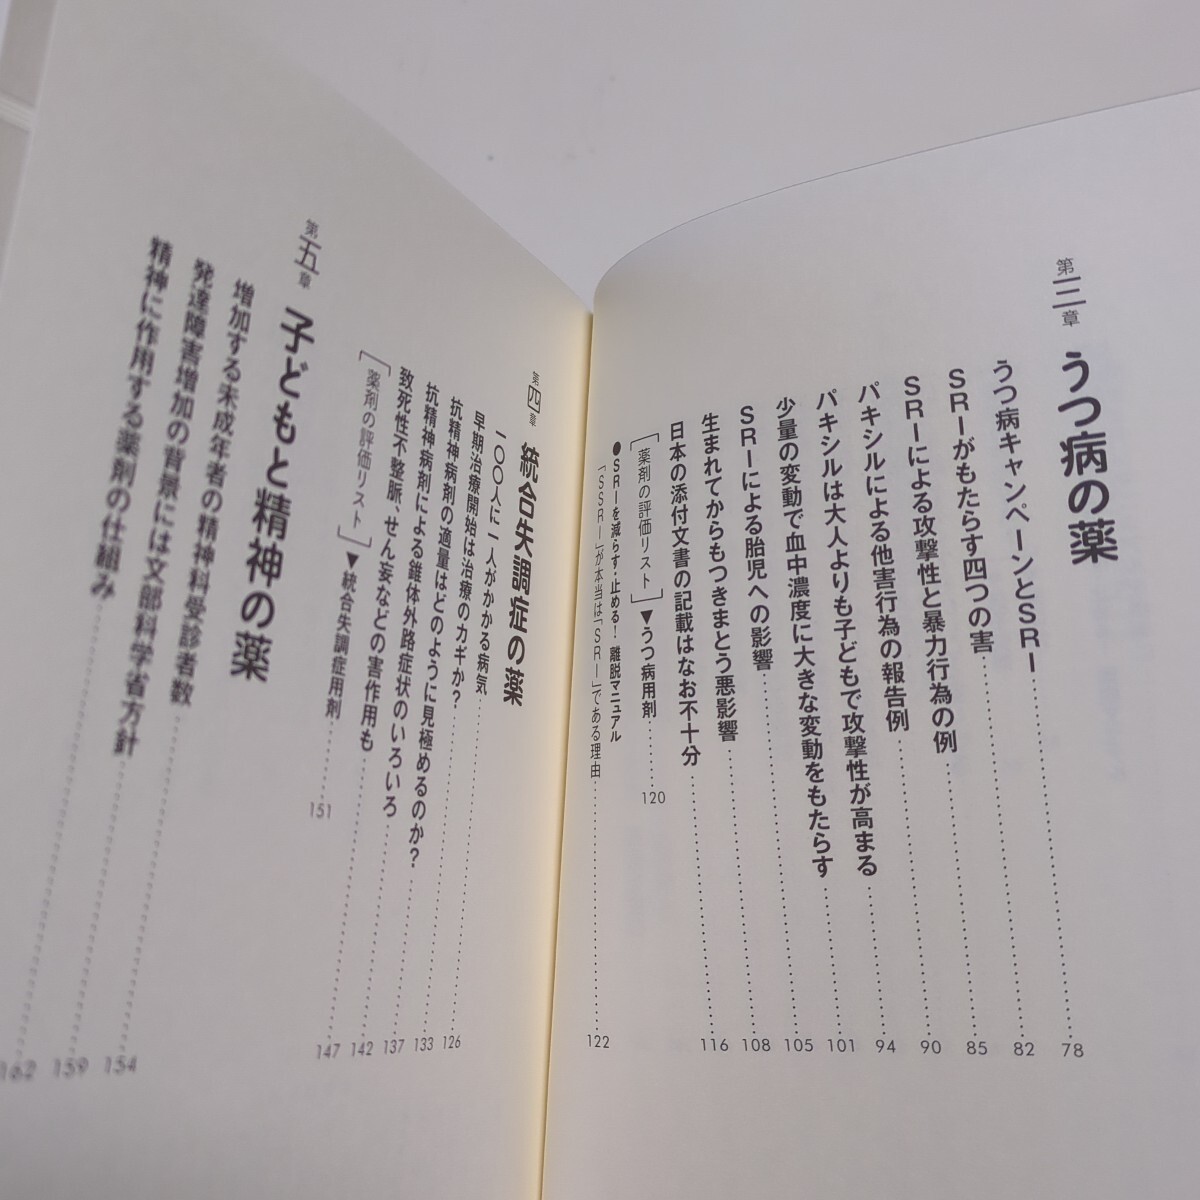 第三章 うつ病の薬
うつ病キャンペーンとSRI……78
SRIがもたらす四つの害……82
SRIによる攻撃性と暴力行為の例……85
パキシルによる他害行為の報告例……90
パキシルは大人よりも子どもで攻撃性が高まる……94
少量の変動で血中濃度に大きな変動をもたらす……101
SRIによる胎児への影響……105
生まれてからもつきまとう悪影響……108
日本の添付文書の記載はなお不十分……116
[薬剤の評価リスト]▼うつ病用剤……120
●SRIを減らす・止める！ 離脱マニュアル
「SSRI」が本当は「SRI」である理由……122
第四章 統合失調症の薬
一〇〇人に一人がかかる病気……126
早期治療開始は治療のカギか？……133
抗精神病剤の適量はどのように見極めるのか？……137
抗精神病剤による錐体外路症状のいろいろ……142
致死性不整脈、せん妄などの害作用も……147
[薬剤の評価リスト]▼統合失調症用剤……151
第五章 子どもと精神の薬
増加する未成年者の精神科受診者数……154
発達障害増加の背景には文部科学省方針……159
精神に作用する薬剤の仕組み……162